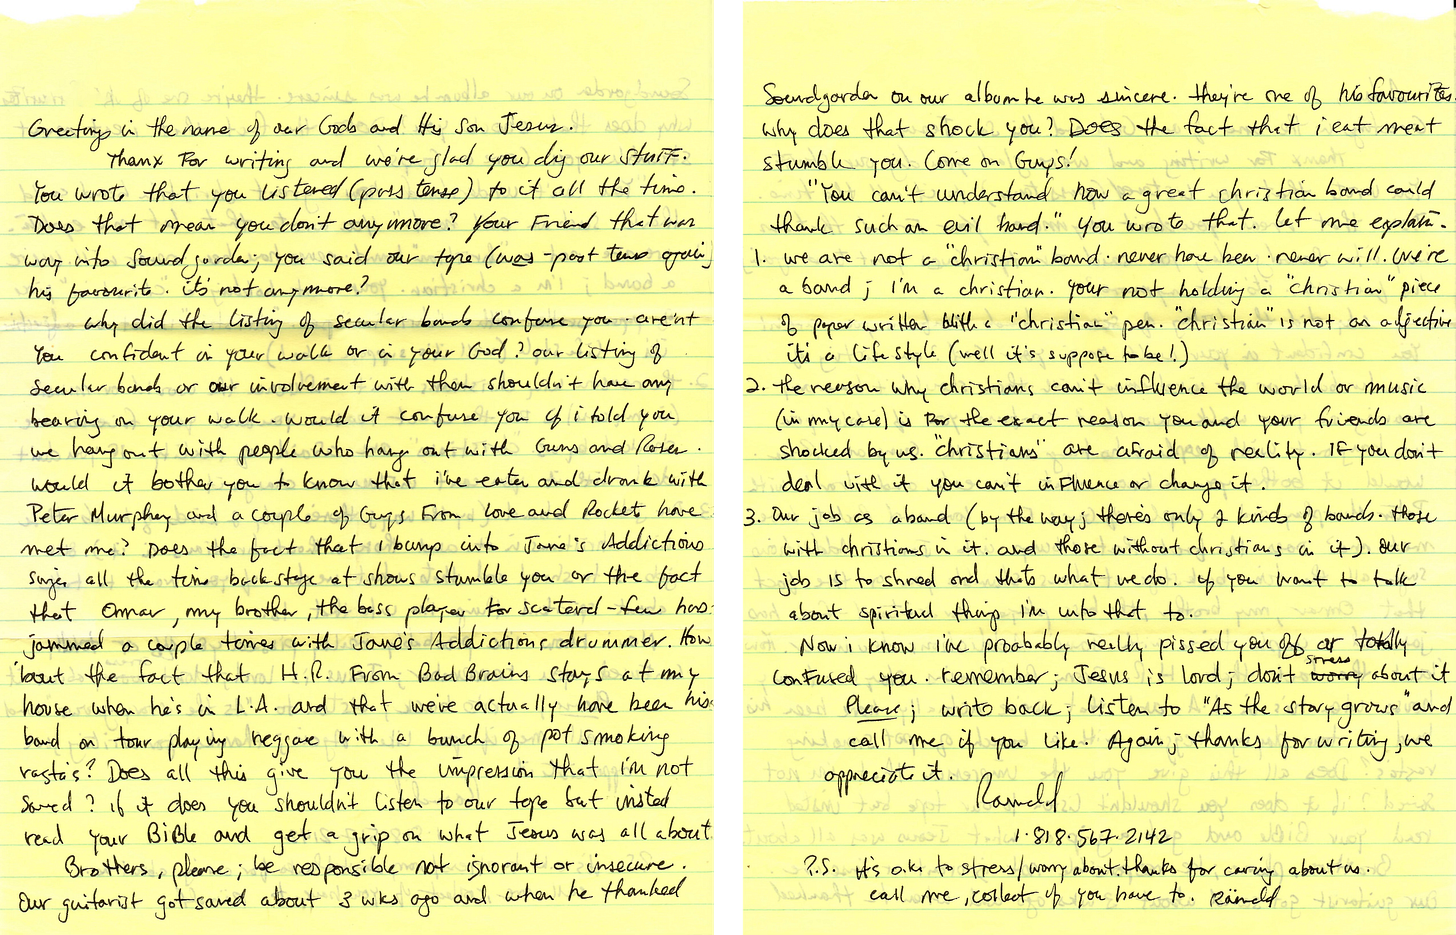 Greetings in the name of our Gods and His Son Jesus.
Thanx For writing and we're glad you dig our stuff.
You wrote that you listened (pass tense) to it all the time.
Does that mean you don't anymore? Your Friend that was
way into Soundgarden; you said our tape (was - past tense again)
his favourite. it's not anymore?
why did the listing of secular bands confuse you. aren't
you confident in your walk or in your God? our listing of
secular bands or our involvement with them shouldn't have any
bearing on your walk. would it confuse you if i told you
we hang out with people who hang out with Guns and Roses.
would it bother you to know that i've eaten and drank with
Peter Murphey and a couple of Guys From Love and Rocket have
met me? Does the fact that i bump into Jane's Addictions
singer all the time backstage at shows stumble you or the fact
that Omar, my brother, the bass player for scaterd-few has
jammed a couple times with Jane's Addictions drummer. How
'bout the fact that H.R. From Bad Brains stays at my
house when he's in L.A. and that we've actually have been his
band on tour playing reggae with a bunch of pot smoking
rasta's? Does all this give you the impression that i'm not
Saved? if it does you shouldn't listen to our tape but insted
read your BiBle and get a grip on what Jesus was all about.
Brothers, please; be responsible not ignorant or insecure.
Our guitarist got saved about 3 wks ago and when he thanked
Soundgarden on our album he was sincere. they're one of his favourites.
why does that shock you? Does the fact that i eat meat
stumble you. Come on Guys!
"You can't understand how a great christian band could
thank such an evil band." You wrote that. let me explain.
1. we are not a "christian" band. never have been. never will. We're
a band; I'm a christian. your not holding a "christian" piece
of paper written with a "christian" pen. "christian" is not an adjective
it's a lifestyle (well it's suppose to be!)
2. the reason why christians can't influence the world or music
(in my case) is For the exact reason you and your friends are
shocked by us. "christians" are afraid of reality. IF you don't
deal with it you can't inFluence or change it.
3. Our job as a band (by the way; there's only 2 kinds of bands. those
with christians in it. and those without christians in it). our
job is to shred and thats what we do. if you want to talk
about spiritual things i'm into that to.
Now i know i've proabably really pissed you off or totally
conFused you. remember; Jesus is lord; don't worry stress about it
Please; write back; listen to "As the story grows" and
call me if you like. Again; thanks for writing, we
appreciate it.
Ramald
1·818·567·2142
P.S. it's o.k. to stress/worry about. thanks for caring about us.
call me, collect if you have to. Ramald